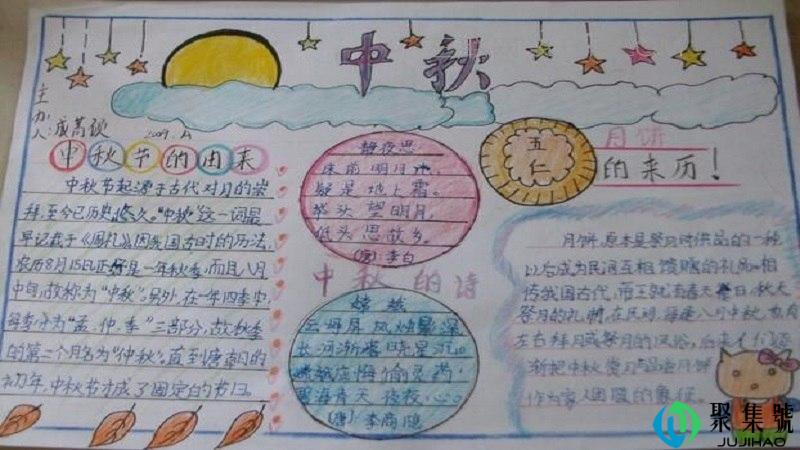 中秋
主办人:成
中秋节的由来
中秋节起源于古代对月的崇
拜,至今已历史悠久。“中秋”这一词最
早记载于《周礼》因我国古时的历法,
农历8月15日正好是一年秋季,而且八月
中旬,故称为“中秋”。另外,在一年四季中,
每季分为“孟,仲,季”三部分,故秋季
的第二个月名为“仲秋”,直到唐朝的
初年,中秋节才成了固定的节日。
静夜思
床前明月光,
疑是地上霜。
举头望明月,
低头思故乡。
(唐)李白
中秋的诗
嫦娥
云母屏风烛影深
长河渐落晓星沉。
嫦娥应悔偷灵药,
碧海青天夜夜心。
(唐)李商隐
五仁
月饼
的来历!
月饼,原本是祭月时供品的一种
以后成为民间互相馈赠的礼品。相
传我国古代,帝王就有春天祭日,秋天
祭月的礼制,在民间,每逢八月中秋,也有
左右拜月或祭月的风俗,后来人们逐
渐把中秋赏月与品尝月饼
作为家人团圆的象征。
聚集號
JUJIHAO